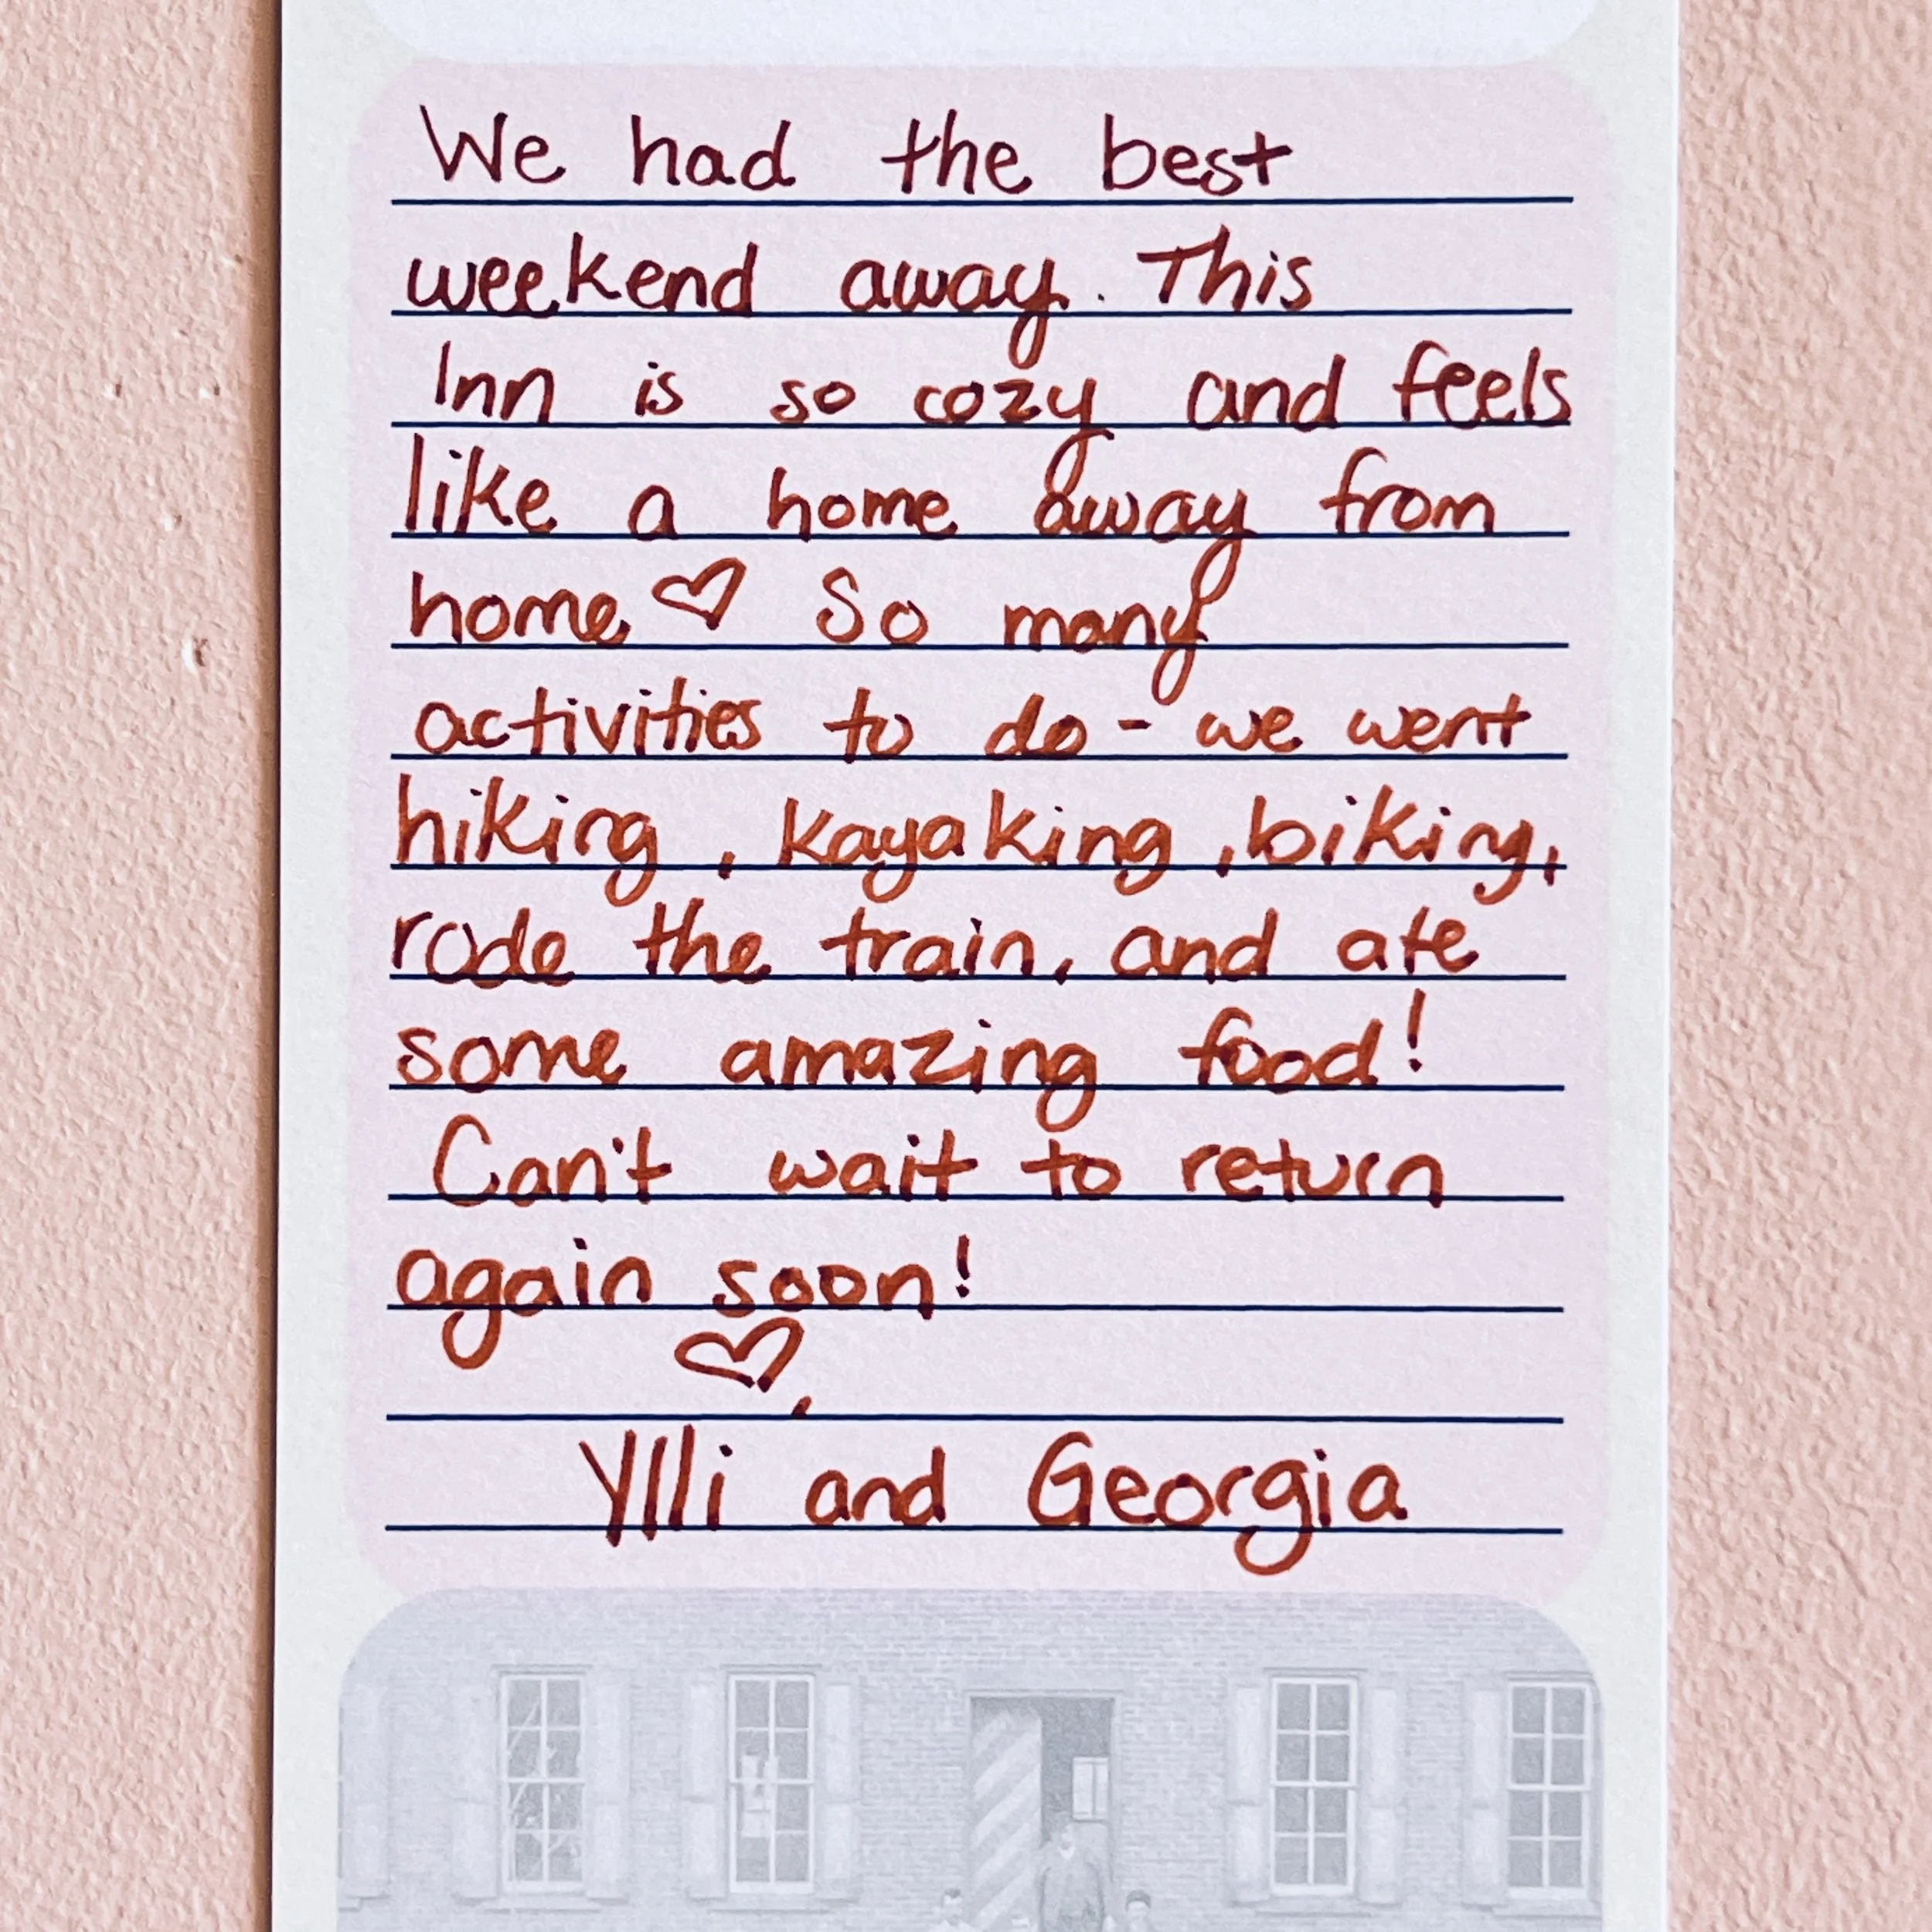 We had the best
weekend away. This
Inn is so cozy and feels
like a home away from
home ♡ So many
activities to do - we went
hiking, kayaking, biking,
rode the train, and ate
some amazing food!
Can't wait to return
again soon!
♡,
Ylli and Georgia